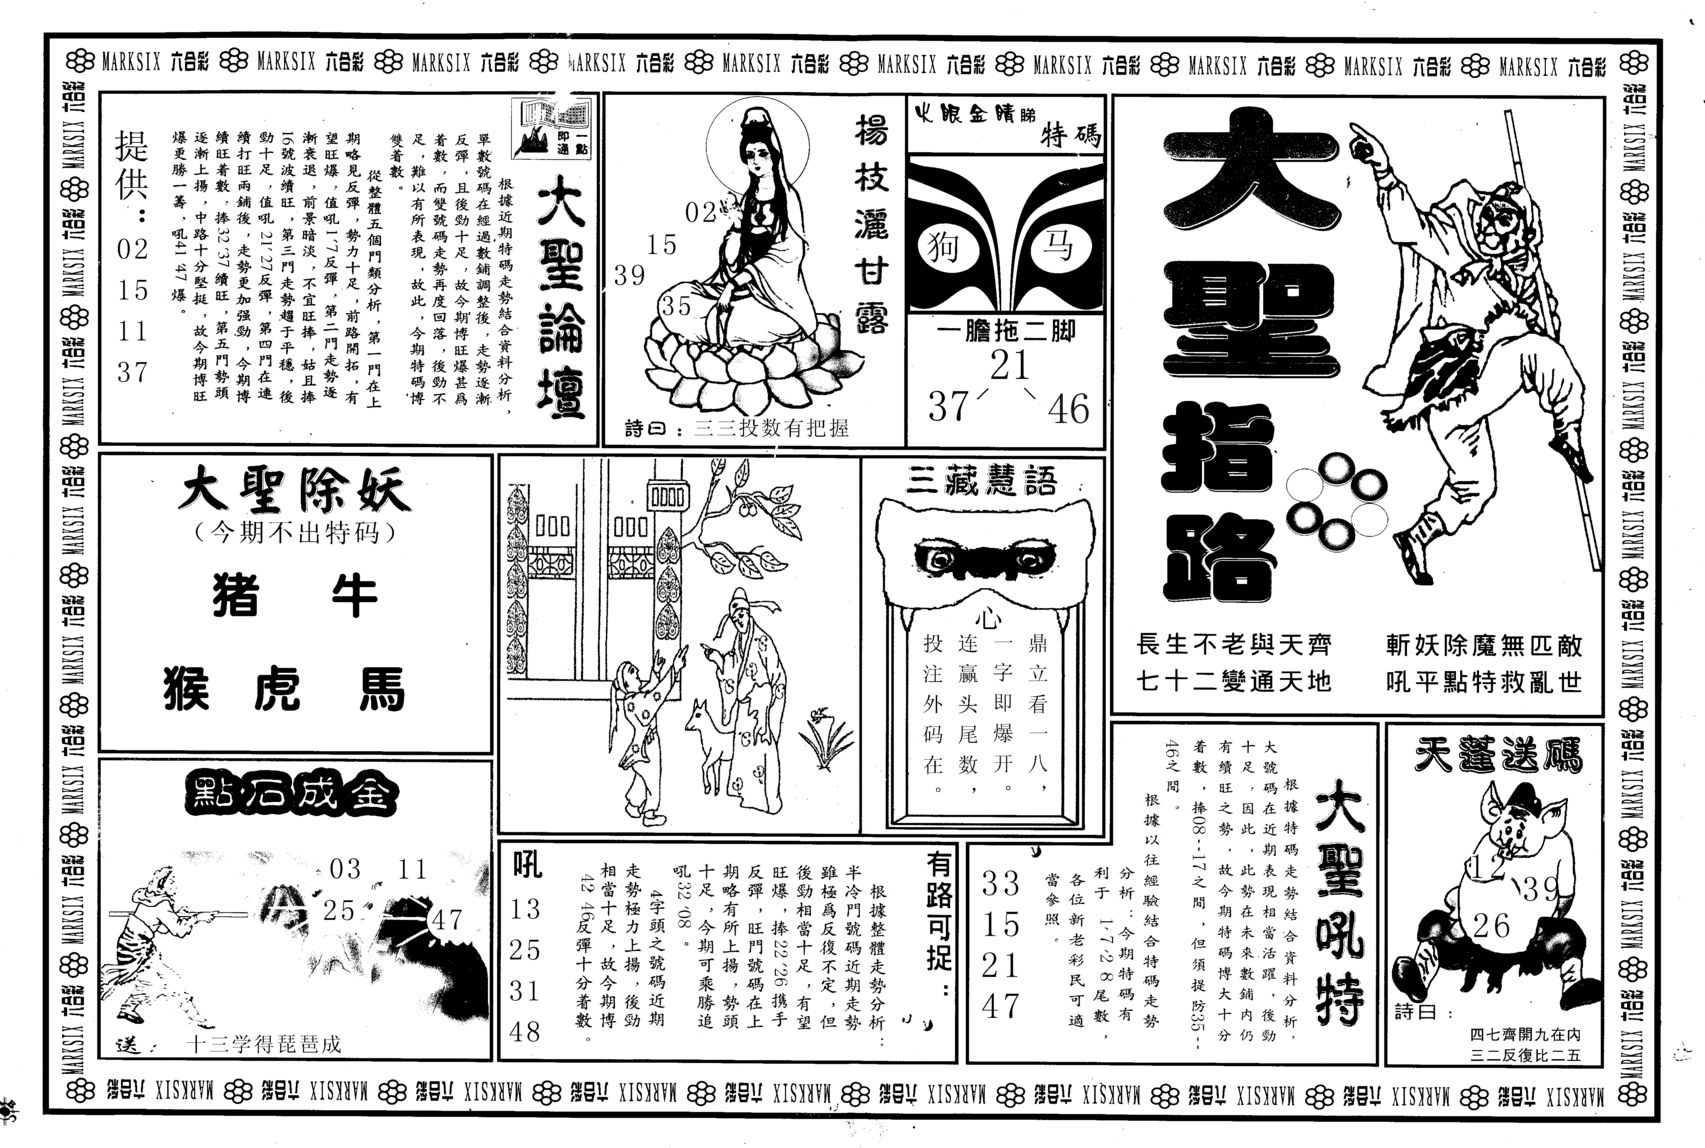 大聖指路
斬妖除魔無匹敵
吼平點特救亂世
長生不老與天齊
七十二變通天地
火眼金睛睇
特碼
狗
马
一膽拖二脚
21
37
46
楊枝灑甘露
02
15
39
35
詩曰：三三投数有把握
一點即通
大聖論壇
根據近期特碼走勢結合資料分析，
單數號碼在經過數鋪調整後，走勢逐漸
反彈，且後勁十足，故今期博旺爆甚爲
着數，而雙號碼走勢再度回落，後勁不
足，難以有所表現，故此，今期特碼博
雙着數。
從整體五個門類分析，第一門在上
期略見反彈，勢力十足，前路開拓，有
望旺爆，值吼1′7反彈，第二門走勢逐
漸衰退，前景暗淡，不宜旺捧，姑且捧
16號波續旺，第三門走勢趨于平穩，後
勁十足，值吼21′27反彈，第四門在連
續打旺兩鋪後，走勢更加强勁，今期博
續旺着數，捧32′37續旺，第五門勢頭
逐漸上揚，中路十分堅挺，故今期博旺
爆更勝一籌，吼41′47爆。
提供：
02
15
11
37
大聖除妖
（今期不出特码）
猪 牛
猴 虎 馬
三藏慧語
心
鼎立看一八，
一字即爆开。
连赢头尾数，
投注外码在。
點石成金
03
11
25
47
送： 十三学得琵琶成
有路可捉：
根據整體走勢分析：
半冷門號碼近期走勢
雖極爲反復不定，但
後勁相當十足，有望
旺爆，捧22′26携手
反彈，旺門號碼在上
期略有所上揚，勢頭
十足，今期可乘勝追
吼32′08。
4字頭之號碼近期
走勢極力上揚，後勁
相當十足，故今期博
42′46反彈十分着數。
吼
13
25
31
48
大聖吼特
根據特碼走勢結合資料分析，
大號碼在近期表現相當活躍，後勁
十足，因此，此勢在未來數鋪内仍
有續旺之勢，故今期特碼博大十分
着數，捧08--17之間，但須提防35--
46之間。
根據以往經驗結合特碼走勢
分析：今期特碼有
利于 1-7-2-8尾數，
各位新老彩民可適
當參照。
33
15
21
47
天蓬送碼
12
39
26
詩曰：
四七齊開九在内
三二反復比二五
MARKSIX 六合彩